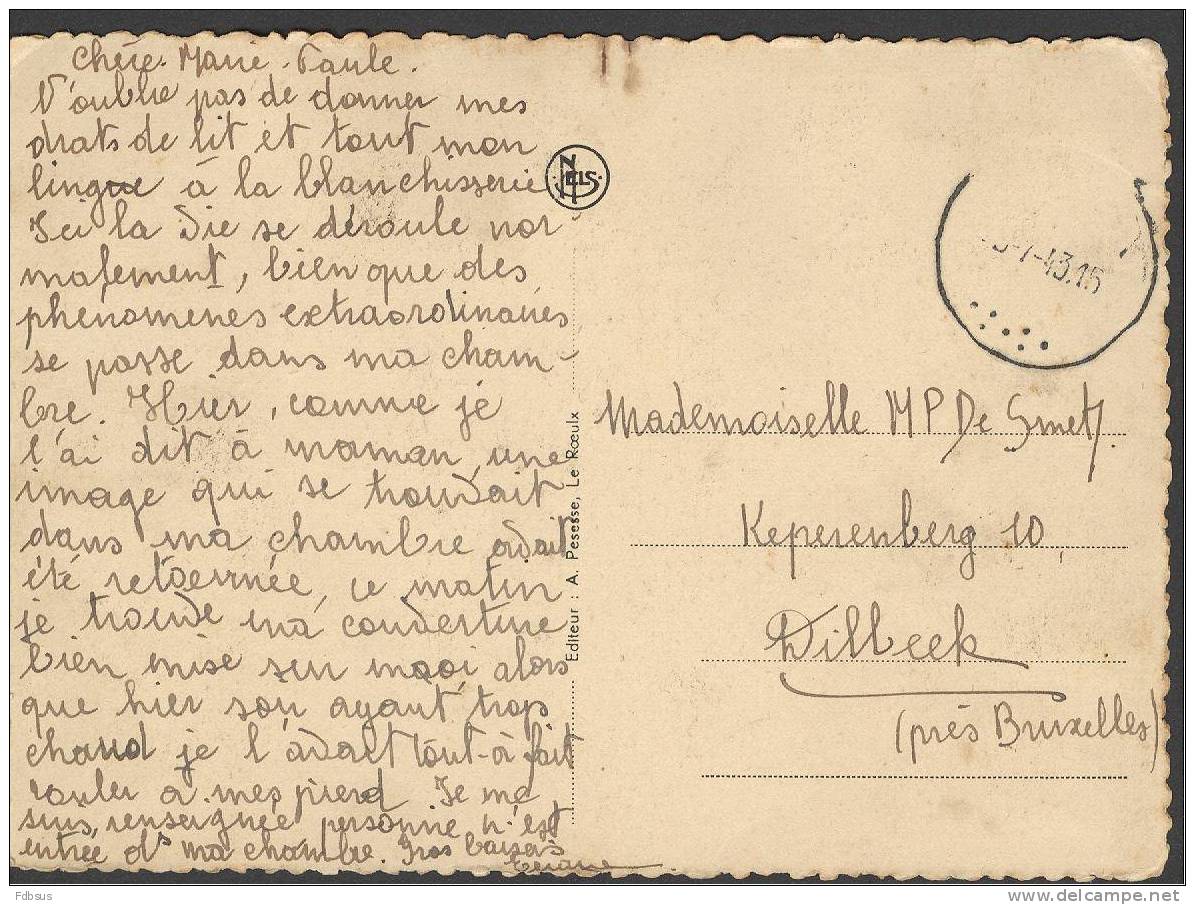 Chère Marie-Paule.
N'oublie pas de donner mes
drats de lit et tout mon
lingue à la blanchisserie
Ici la vie se déroule nor-
malement, bien que des
phénomènes extraordinaires
se passe dans ma cham-
bre. Hier, comme je
l'ai dit à maman une
image qui se trouvait
dans ma chambre avait
été retournée, ce matin
je trouve ma couverture
bien mise sur moi alors
que hier soir ayant trop
chaud je l'avait tout-à-fait
rouler à mes pierd. Je me
suis renseignée personne n'est
entrée ds ma chambre. Gros baisers
NELS
Editeur : A. Pesesse, Le Rœulx
-7-43.15
Mademoiselle M P De Smet
Keperenberg 10
Dilbeek
(près Bruxelles)
Fdbsus
delcampe.net